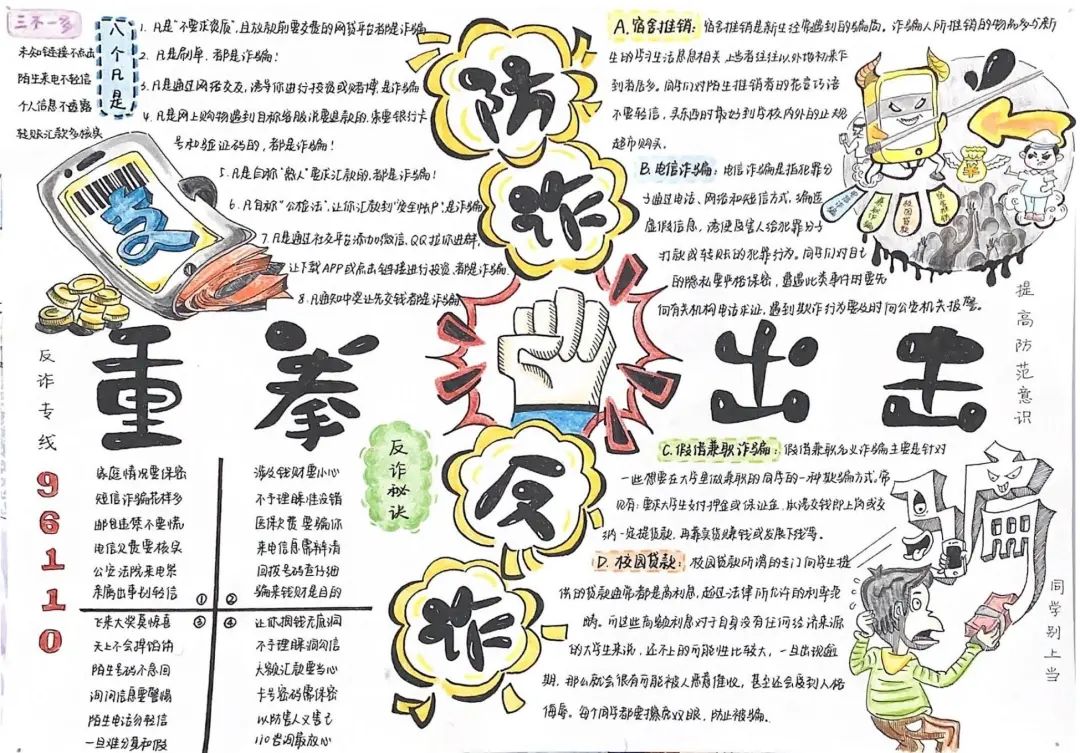 三不一多
未知链接不点击
陌生来电不轻信
个人信息不透露
转账汇款多核实
八个凡是
1. 凡是"不要求资质",且放款前要交费的网贷平台都是诈骗
2. 凡是刷单,都是诈骗!
3. 凡是通过网络交友,诱导你进行投资或赌博,是诈骗
4. 凡是网上购物遇到自称客服说要退款的,索要银行卡
号和验证码的,都是诈骗!
5. 凡是自称"熟人"要求汇款的,都是诈骗!
6. 凡自称"公检法",让你汇款到"安全帐户",是诈骗
7. 凡是通过社交平台添加微信、QQ拉你进群,
让下载APP或点击链接进行投资,都是诈骗
8. 凡通知中奖让先交钱都是诈骗
防
诈
反
诈
重拳
出击
支
A. 宿舍推销:宿舍推销是新生经常遇到的骗局,诈骗人所推销的物品多与新
生的学习生活息息相关,上当者往往以外地初来乍
到者居多。同学们对陌生推销者的花言巧语
不要轻信,买东西时最好到学校内外的正规
超市购买。
B. 电信诈骗:电信诈骗是指犯罪分
子通过电话、网络和短信方式,编造
虚假信息,
打款或转账的犯罪行为。同学们对自己
的隐私要严格保密,遭遇此类事件时要先
向有关机构电话求证,遇到欺诈行为要及时向公安机关报警。
校园贷款
提高防范意识
反诈专线
96110
反诈秘诀
家庭情况要保密
短信诈骗花样多
邮包违禁不要慌
电信欠费要核实
公安法院来电察
亲属出事别轻信
①
涉及钱财要小心
不予理睬准没错
医保欠费要骗你
来电信息需辨清
回拨号码查仔细
骗来钱财是目的
②
飞来大奖莫惊喜
天上不会掉馅饼
陌生号码不急回
询问信息要警惕
陌生电话勿轻信
一旦难分真和假
③
让你掏钱无底洞
不予理睬洞勿信
大额汇款要当心
卡号密码需保密
以防害人又害己
110咨询最放心
④
C. 假借兼职诈骗:假借兼职名义诈骗主要是针对
一些想要在大学里做兼职的同学的一种欺骗方式。常
见有:要求大学生支付押金或保证金,
纳一定提货款,再靠卖货赚钱或发展下线等。
D. 校园贷款:校园贷款所谓的专门向学生提
供的贷款通常都是高利息,超过法律所允许的利率范
畴。而这些高额利息对于自身没有任何经济来源
的大学生来说,还不上的可能性比较大,一旦出现逾
期,那么就会很有可能被人恶意催收,甚至还会受到人格
侮辱。每个同学都要擦亮双眼,防止被骗。
同学别上当